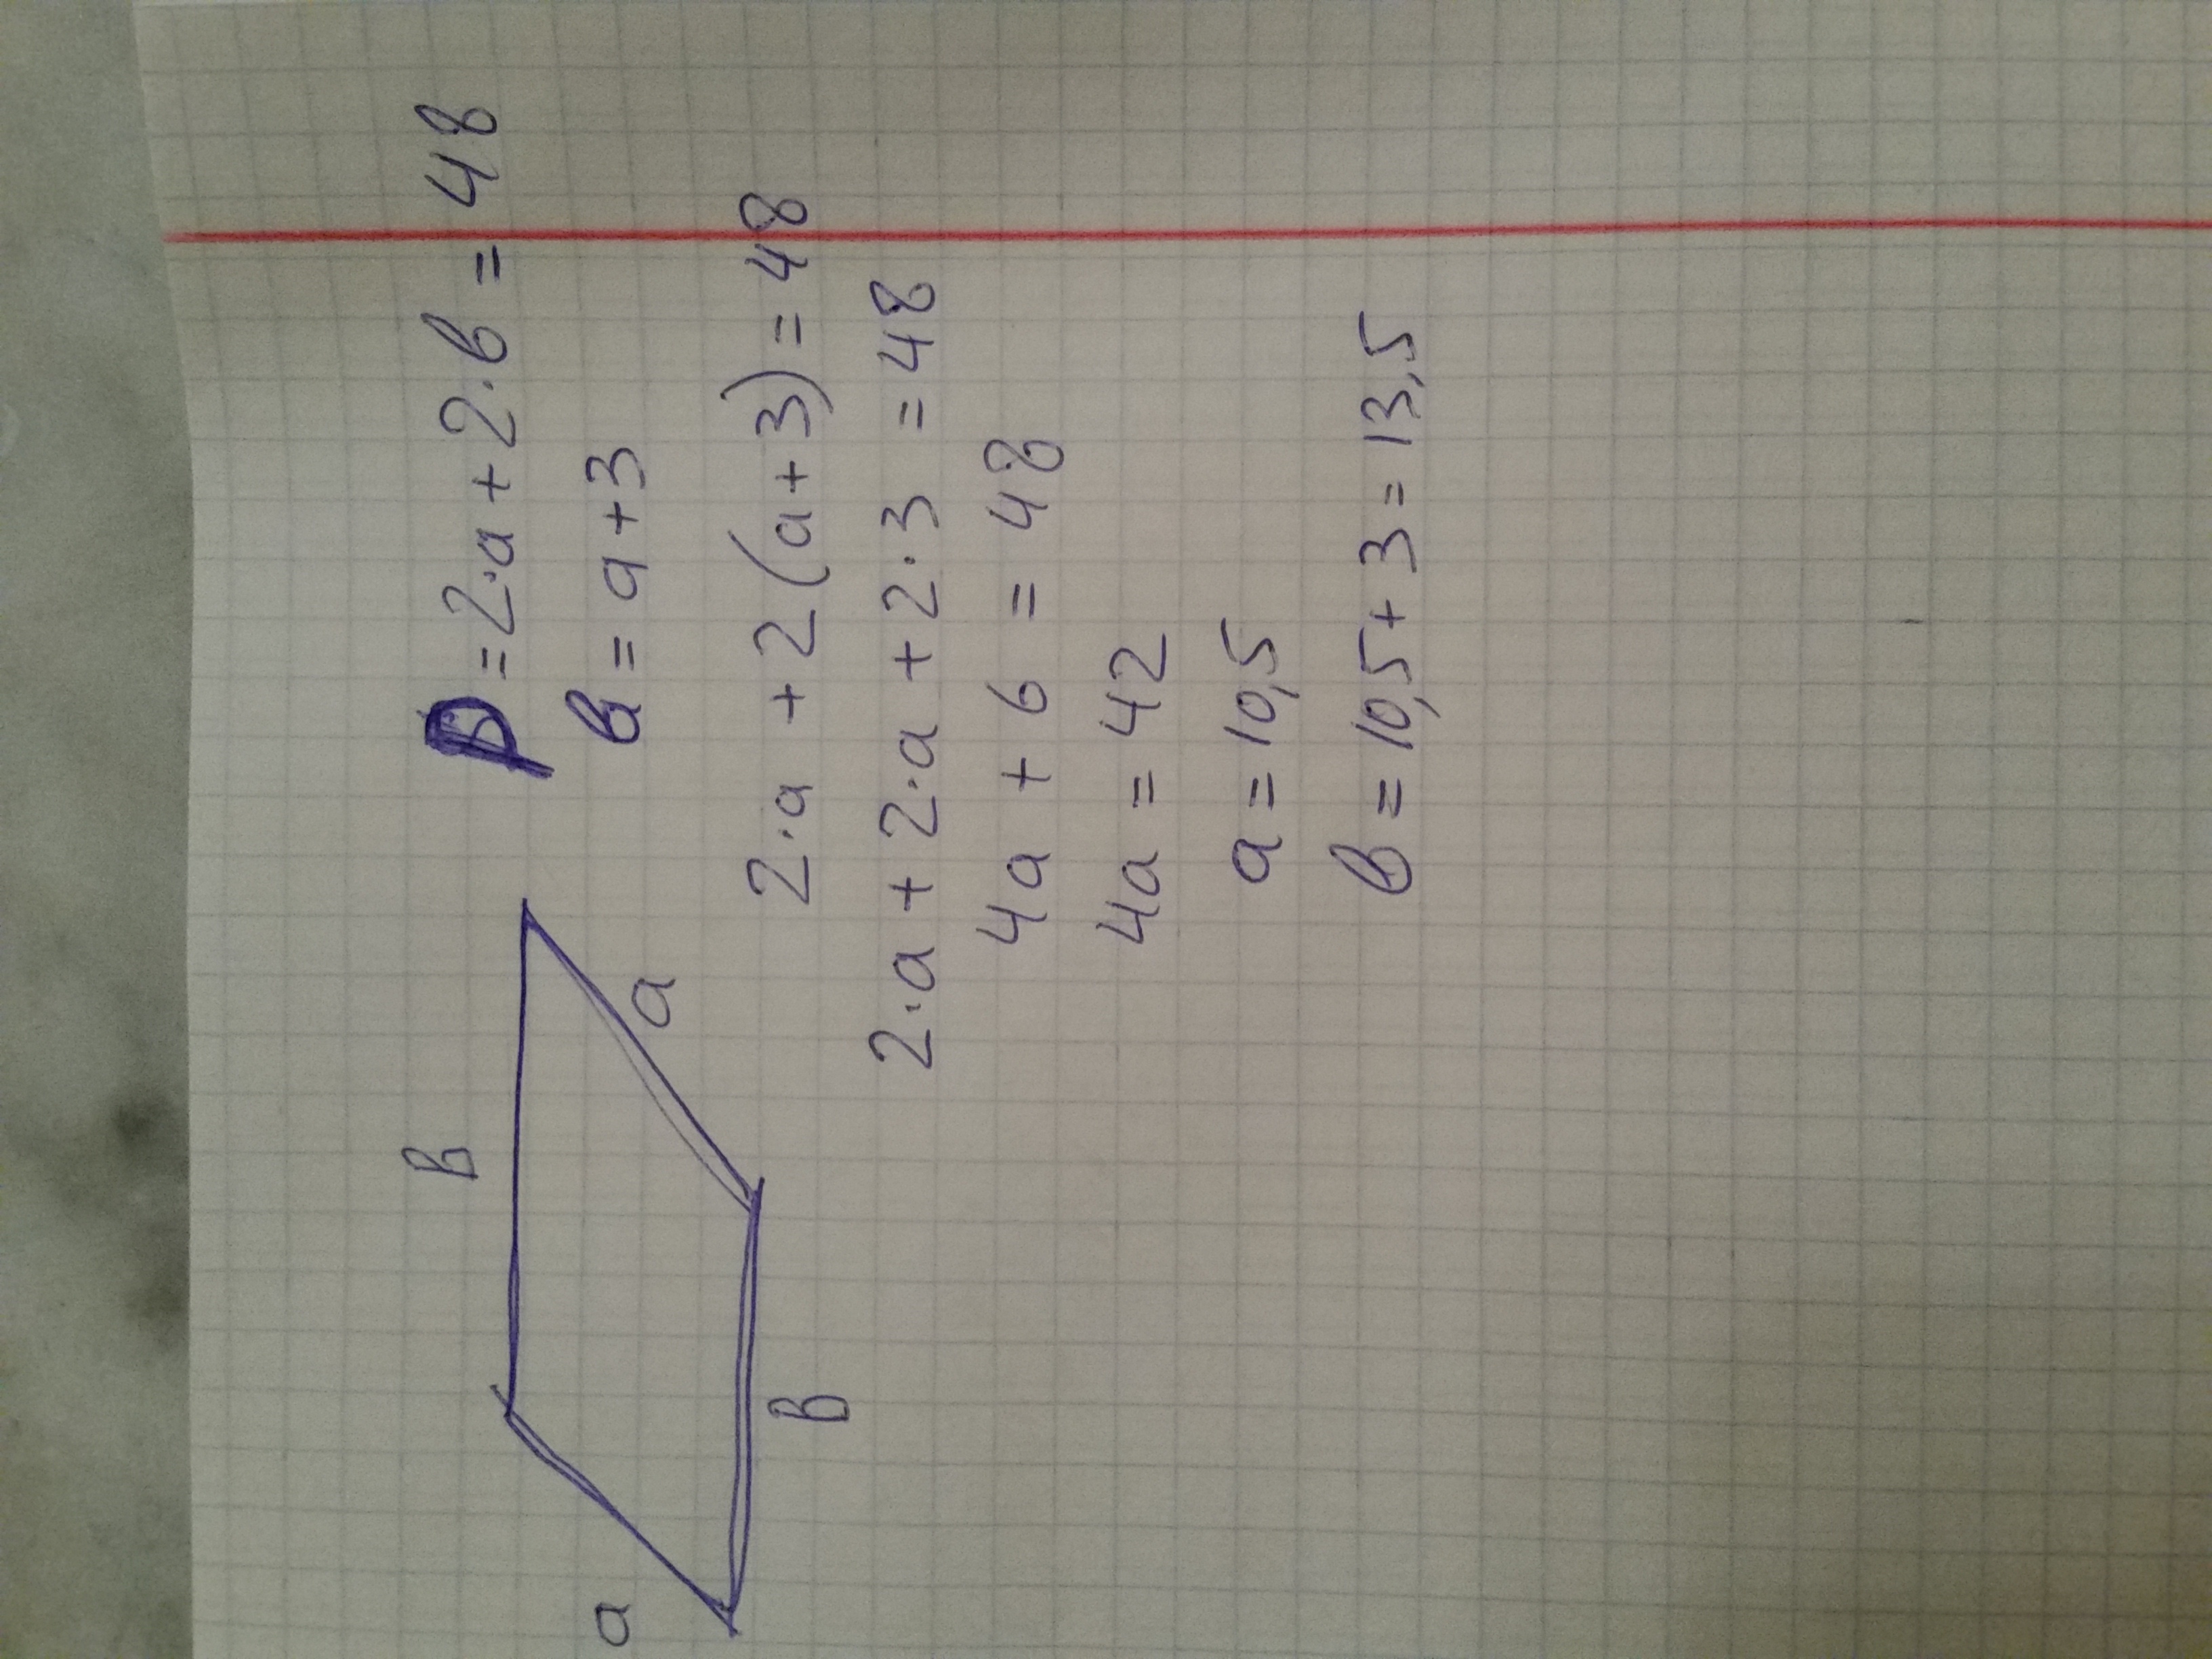 в
а
а
в
P=2·a+2·в=48
в=a+3
2·a+2(a+3)=48
2·a+2·a+2·3=48
4a+6=48
4a=42
a=10,5
в=10,5+3=13,5